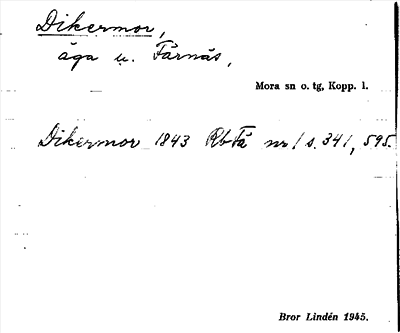 Dikermor,
äga u. Färnäs,
Mora sn o. tg, Kopp. l.
Dikermor 1843 Rb Fä nr 1 s. 341, 595.
Bror Lindén 1945.